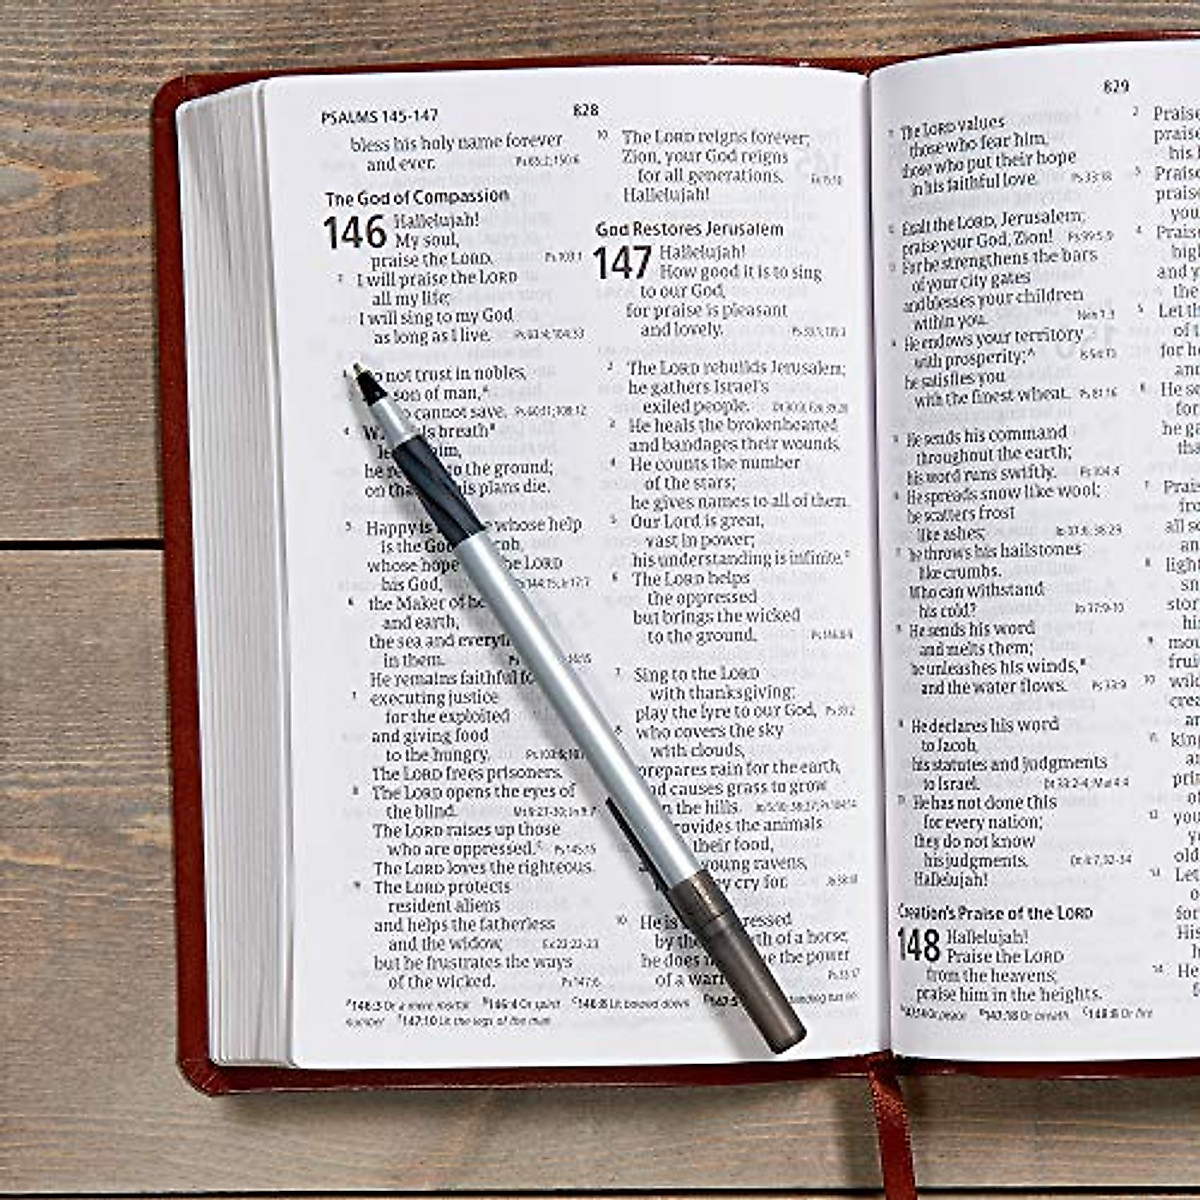 PSALMS 145-147
828
bless his holy name forever
and ever.
The God of Compassion
146 Hallelujah!
My soul,
praise the LORD. Ps 103:1
2 I will praise the LORD
all my life;
I will sing to my God
as long as I live.
o not trust in nobles,
son of man,A
o cannot save.
4 W is breathB
him,
he re to the ground;
on tha his plans die.
5 Happy is whose help
is the God cob,
whose hope the LORD
his God,
6 the Maker of he
and earth,
the sea and everyth
in them.
He remains faithful fo
7 executing justice
for the exploited
and giving food
to the hungry.
The LORD frees prisoners.
8 The LORD opens the eyes of
the blind.
The LORD raises up those
who are oppressed.C Ps 145:15
The LORD loves the righteous.
9 The LORD protects
resident aliens
and helps the fatherless
and the widow,
but he frustrates the ways
of the wicked. Ps 147:6
10 The LORD reigns forever;
Zion, your God reigns
for all generations.
Hallelujah!
God Restores Jerusalem
147 Hallelujah!
How good it is to sing
to our God,
for praise is pleasant
and lovely.
2 The LORD rebuilds Jerusalem;
he gathers Israel's
exiled people.
3 He heals the brokenhearted
and bandages their wounds.
4 He counts the number
of the stars;
he gives names to all of them.
5 Our Lord is great,
vast in power;
his understanding is infinite.D
6 The LORD helps
the oppressed
but brings the wicked
to the ground.
7 Sing to the LORD
with thanksgiving;
play the lyre to our God, Ps 33:2
8 who covers the sky
with clouds,
prepares rain for the earth,
nd causes grass to grow
n the hills.
rovides the animals
their food,
young ravens,
ey cry for.
10 He is ressed
by the th of a horse;
he does e the power
of a warr
A146:3 Or a mere mortal B146:4 Or spirit C146:8 Lit bowed down
number E147:10 Lit the legs of the man
829
The LORD values
those who fear him,
those who put their hope
in his faithful love. Ps 33:18
Exalt the LORD, Jerusalem;
praise your God, Zion!
For he strengthens the bars
of your city gates
and blesses your children
within you.
He endows your territory
with prosperity;A
he satisfies you
with the finest wheat. Ps 81:16
He sends his command
throughout the earth;
his word runs swiftly. Ps 104:4
He spreads snow like wool;
he scatters frost
like ashes;
he throws his hailstones
like crumbs.
Who can withstand
his cold?
He sends his word
and melts them;
he unleashes his winds,B
and the water flows.
He declares his word
to Jacob,
his statutes and judgments
to Israel.
He has not done this
for every nation;
they do not know
his judgments.
Hallelujah!
Creation's Praise of the LORD
148 Hallelujah!
Praise the LORD
from the heavens;
praise him in the heights.
A147:14 Or peace B147:18 Or breath
2 Praise
praise
his h
3 Praise
praise
you
4 Praise
high
and y
the
5 Let th
of t
for he
and
6 He se
for
he ga
tha
7 Prais
fro
all se
an
8 light
sn
stor
hi
9 mou
frui
10 wild
crea
a
11 king
a
prin
o
12 you
y
old
13 Let
o
for
His
14 He